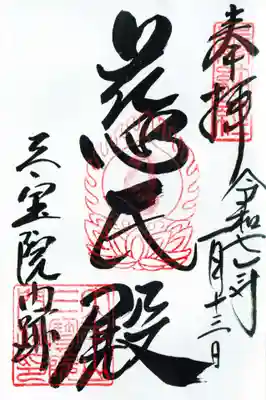 奉拝
令和七年
一月十三日
慈氏殿
三宝院門跡